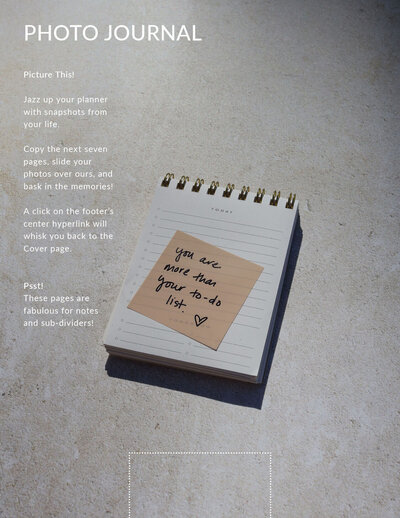 PHOTO JOURNAL
Picture This!
Jazz up your planner
with snapshots from
your life.
Copy the next seven
pages, slide your
photos over ours, and
bask in the memories!
A click on the footer's
center hyperlink will
whisk you back to the
Cover page.
Psst!
These pages are
fabulous for notes
and sub-dividers!
TODAY
you are
more than
your to-do
list.